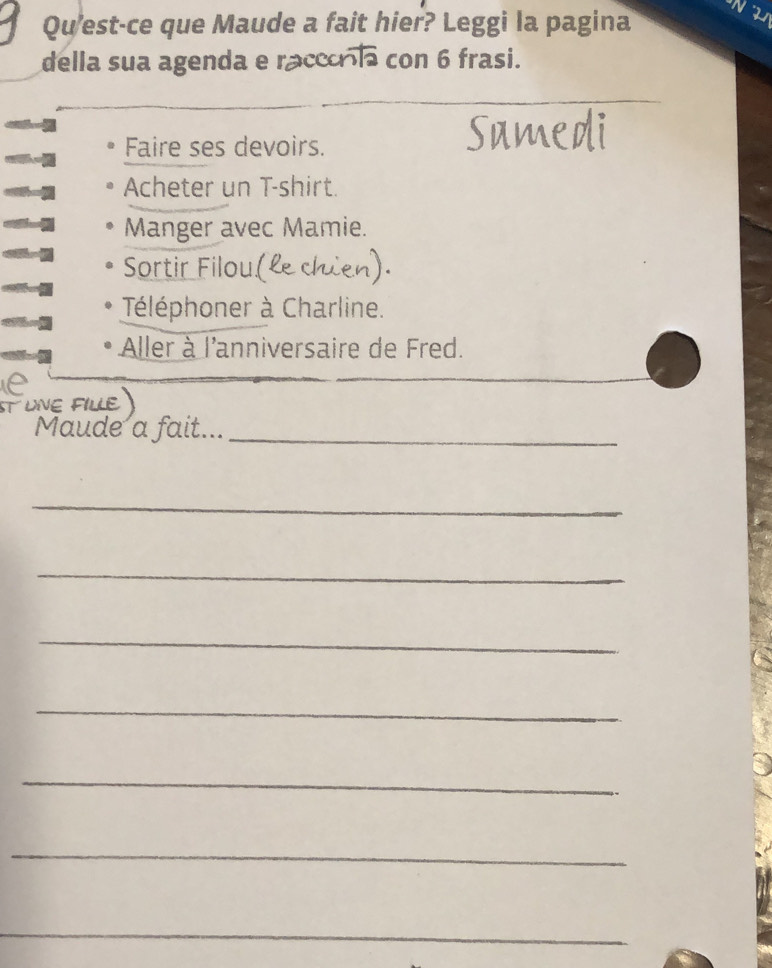 9 Qu'est-ce que Maude a fait hier? Leggi la pagina
della sua agenda e racconta con 6 frasi.
Samedi
• Faire ses devoirs.
• Acheter un T-shirt.
• Manger avec Mamie.
• Sortir Filou.(le chien).
• Téléphoner à Charline.
• Aller à l'anniversaire de Fred.
UNE FILLE)
Maude a fait...